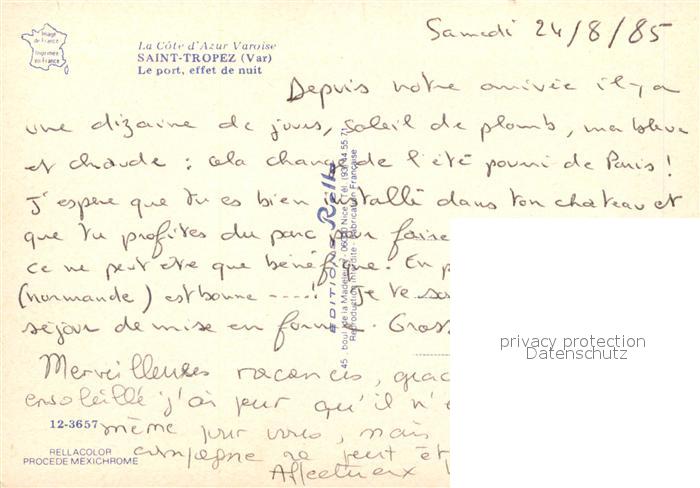 Image
de France
Imprimée
en France
La Côte d'Azur Varoise
SAINT-TROPEZ (Var)
Le port, effet de nuit
Samedi 24/8/85
Depuis notre arrivée il y a
une dizaine de jours, soleil de plomb, mer bleue
et chaude : cela change de l'été pourri de Paris !
J'espère que tu es bien installé dans ton chateau et
que tu profites du parc pour faire
ce ne peut etre que bénéfique. En p
(normande) est bonne ----! Je te so
séjour de mise en forme. Gross
Merveilleuses vacances, grac
ensoleillé j'ai peur qu'il n'e
même pour vous, mais
campagne ne peut êt
Affectueux
12-3657
RELLACOLOR
PROCEDE MEXICHROME
EDITIONS Rella
45 boul. de la Madeleine - 06000 Nice Tél. (93) 44 55 71
Reproduction Interdite - Fabrication Française
privacy protection
Datenschutz